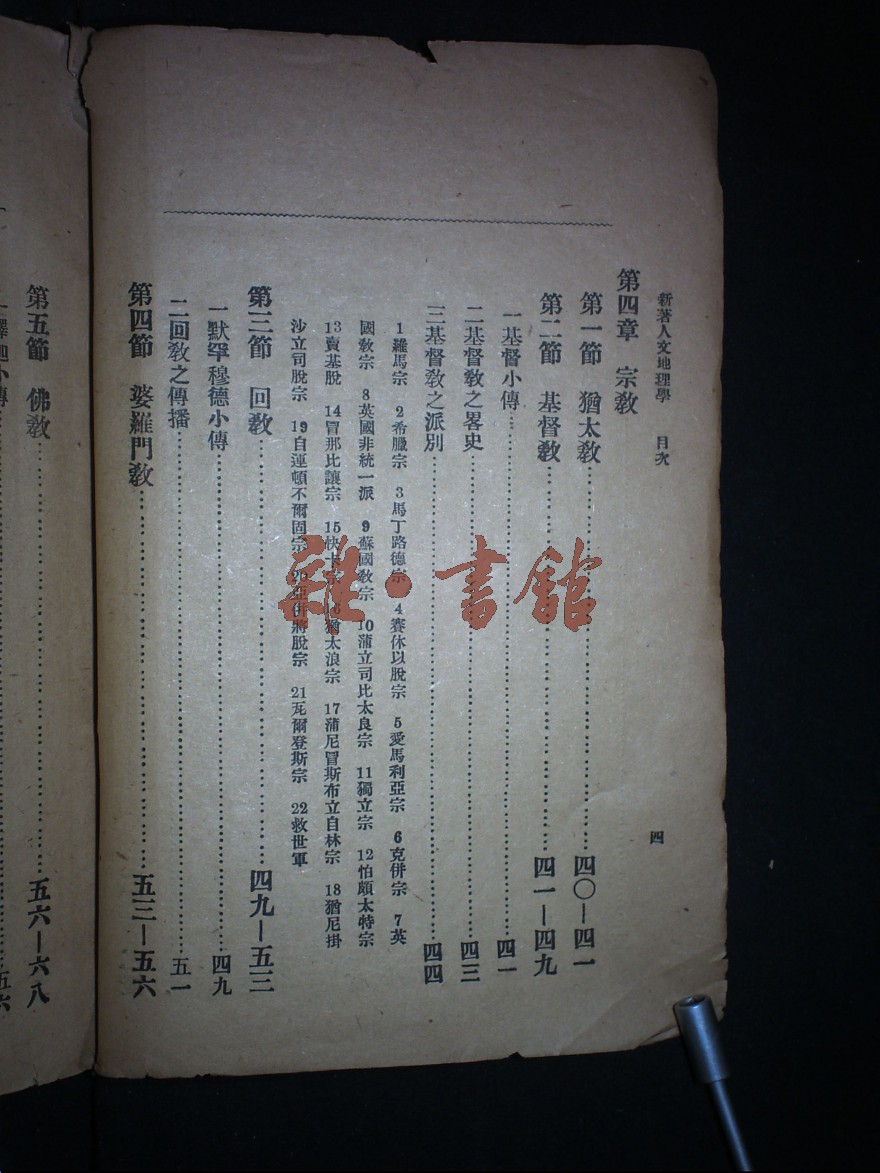 新著人文地理學　目次　四
第四章　宗教
第一節　猶太教……四〇—四一
第二節　基督教……四一—四九
一基督小傳……四一
二基督教之畧史……四三
三基督教之派別……四四
1羅馬宗　2希臘宗　3馬丁路德宗　4賽休以脫宗　5愛馬利亞宗　6克併宗　7英
國教宗　8英國非統一派　9蘇國教宗　10蒲立司比太良宗　11獨立宗　12怕頗太特宗
13賣基脫　14冒那比讓宗　15快卡宗　16猶太浪宗　17蒲尼冒斯布立自林宗　18猶尼掛
沙立司脫宗　19自連頓不爾固宗　20亞併將脫宗　21瓦爾登斯宗　22救世軍
第三節　回教……四九—五三
一默罕穆德小傳……四九
二回教之傳播……五一
第四節　婆羅門教……五三—五六
第五節　佛教……五六—六八
一釋迦小傳……五六
雜·書館